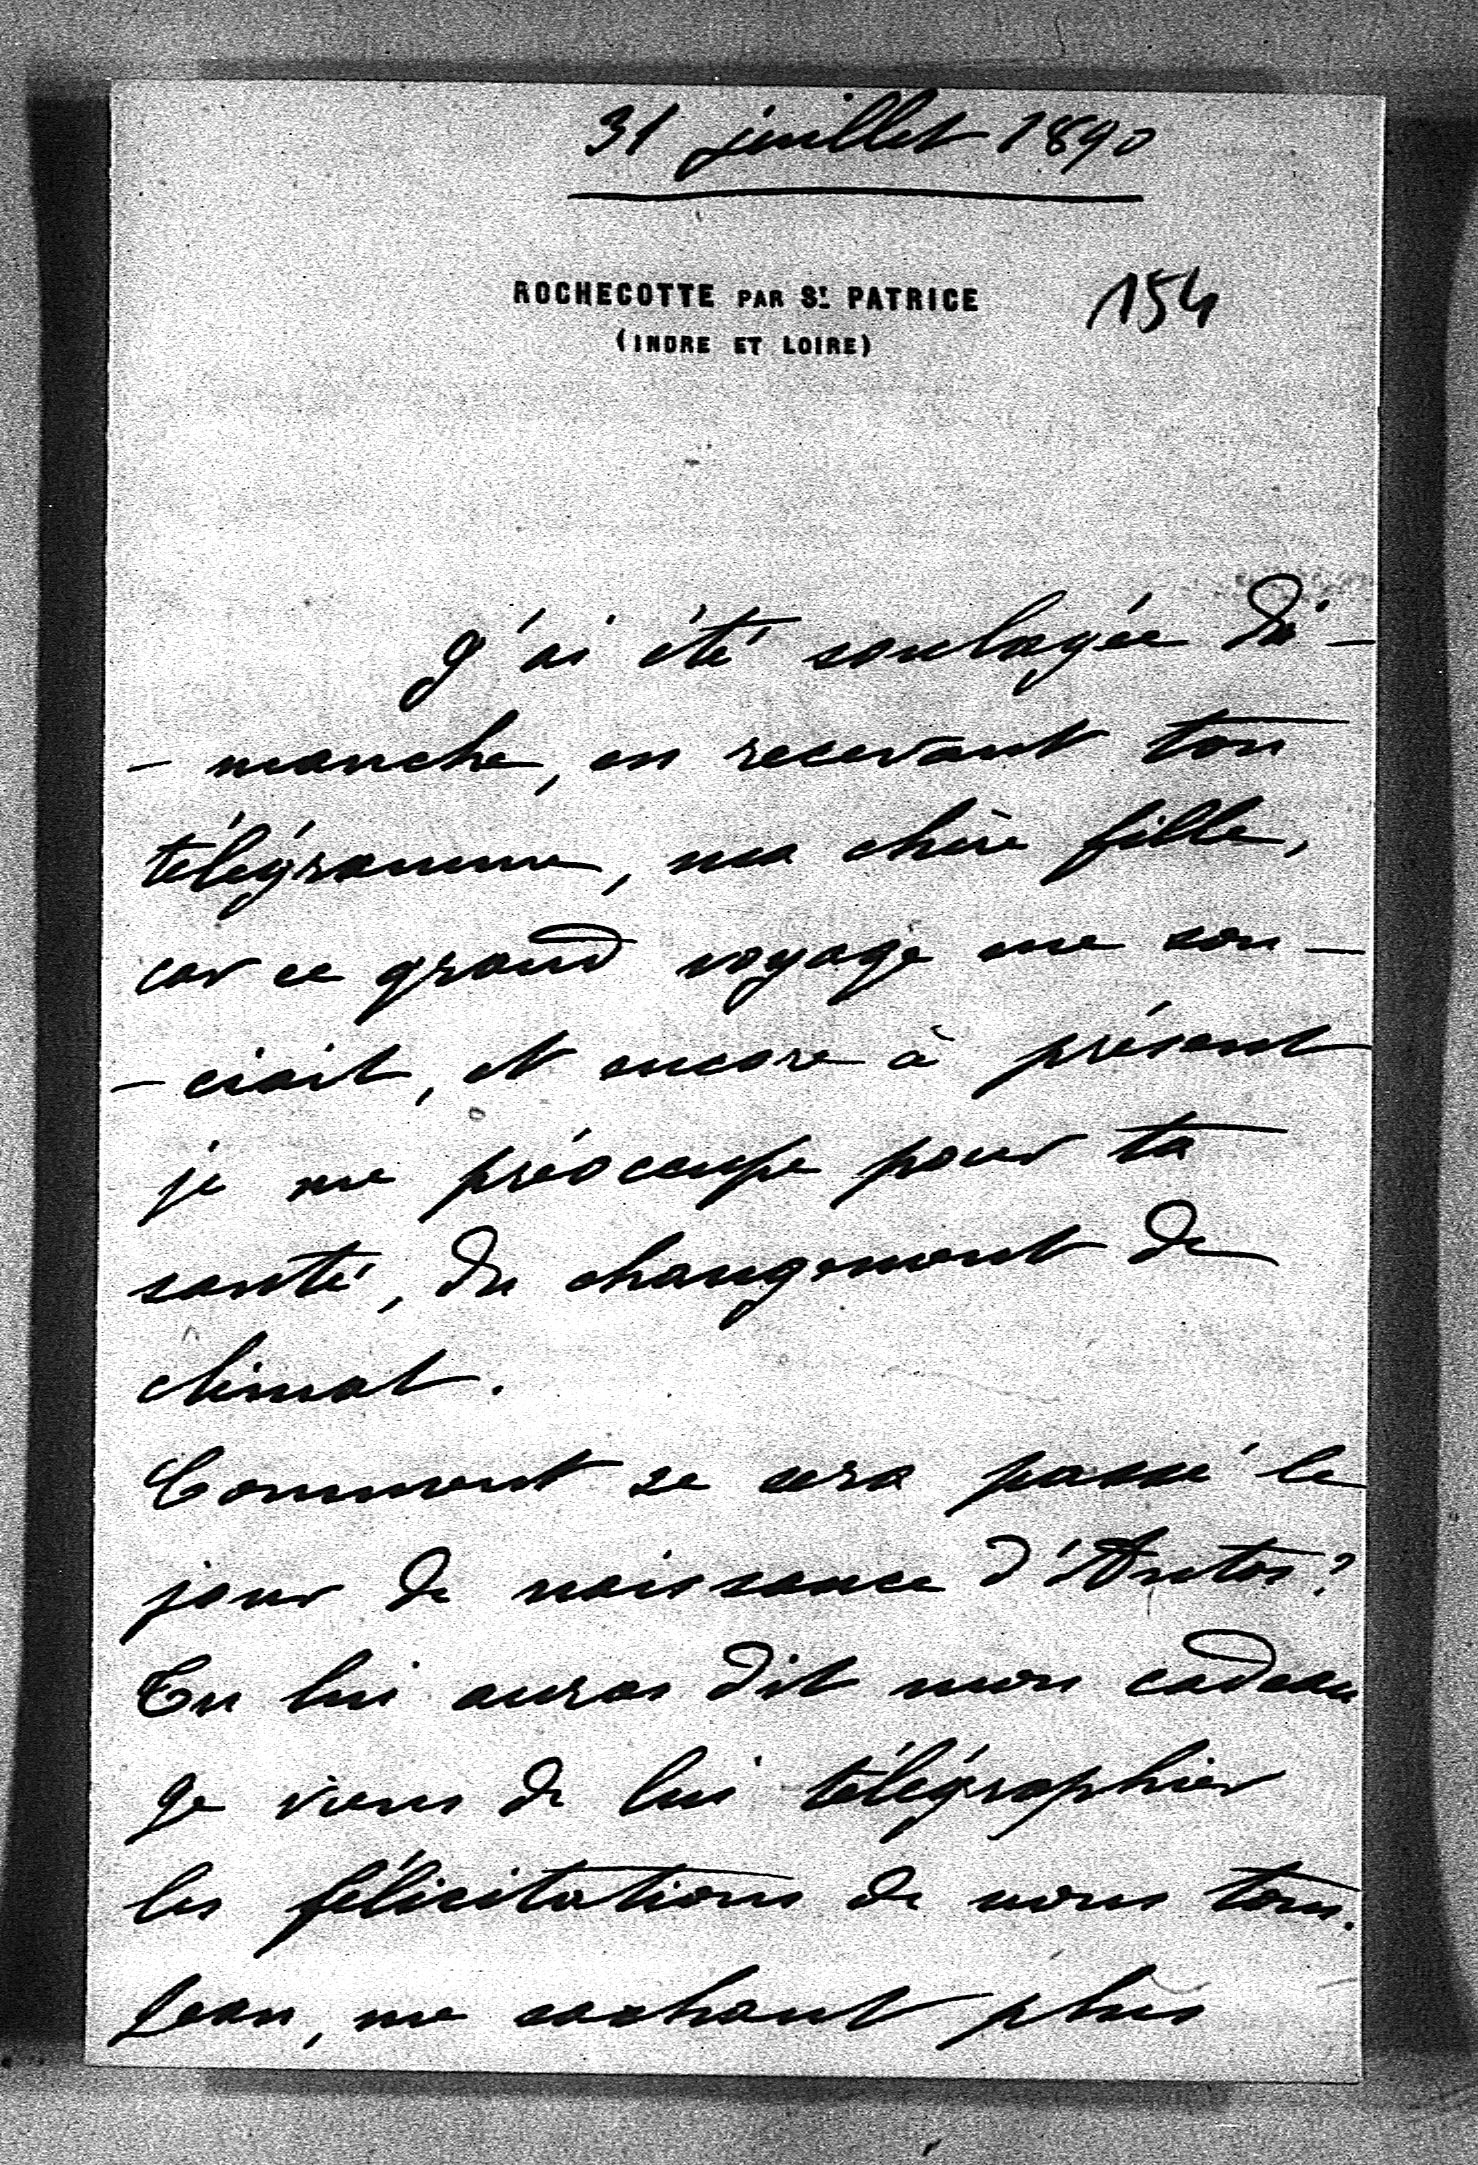 31 juillet 1890
ROCHECOTTE PAR St PATRICE
(INDRE ET LOIRE)
154
J'ai été soulagée di-
- manche, en recevant ton
télégramme, ma chère fille,
car ce grand voyage me sou-
- ciait, et encore à présent
je me préoccupe pour ta
santé, du changement de
climat.
Comment se sera passé le
jour de naissance d'Anton?
Tu lui auras dit mon cadeau
Je viens de lui télégraphier
les félicitations de nous tous.
Jean, me sachant plus